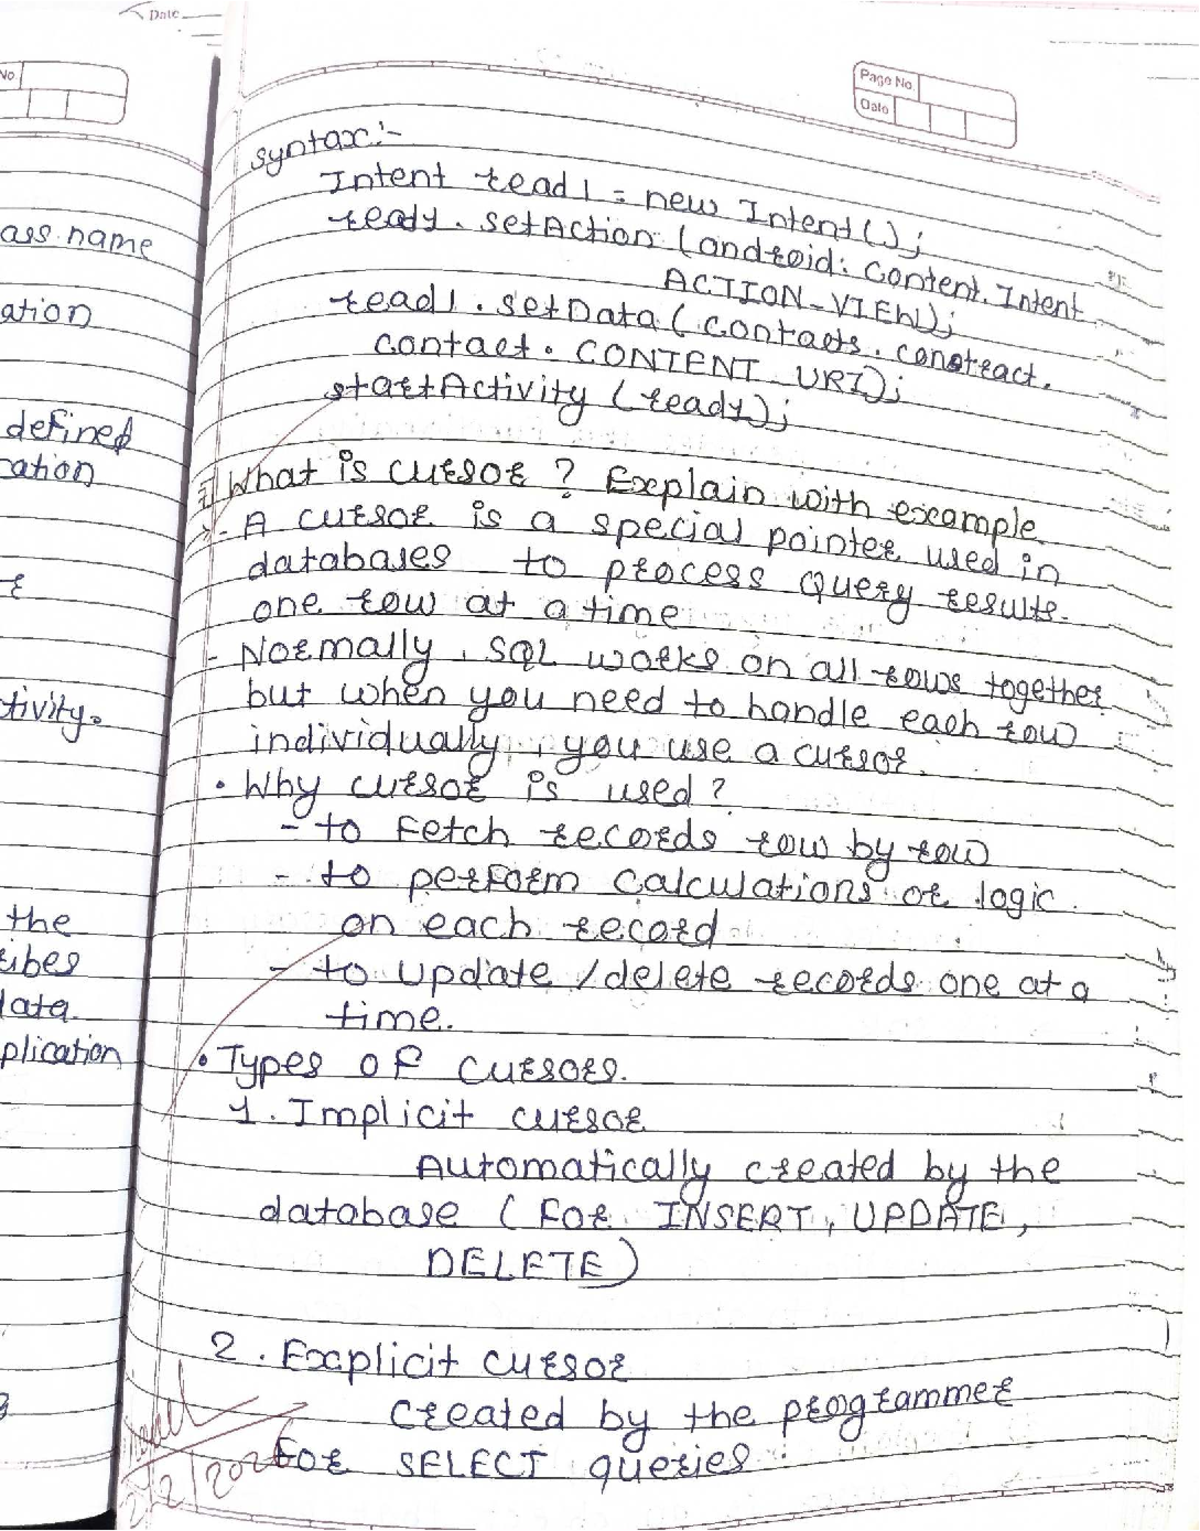 Date
No
ass name
ation
defined
cation
tivity.
the
ribes
data
plication
Page No.
Date
syntax:-
Intent read1 = new Intent();
ready. setAction (android: content. Intent
ACTION_VIEW);
read1. setData (contacts. constract.
contact. CONTENT_URI);
startActivity (ready);
What is cursor? Explain with example
- A cursor is a special pointer used in
databases to process query results.
one row at a time
- Normally, SQL works on all rows together
but when you need to handle each row
individually, you use a cursor.
• Why cursor is used?
- to fetch records row by row
- to perform calculations or logic
on each record
- to update /delete records one at a
time.
• Types of cursors.
1. Implicit cursor
Automatically created by the
database (for INSERT, UPDATE,
DELETE)
2. Explicit cursor
created by the programmer
for SELECT queries